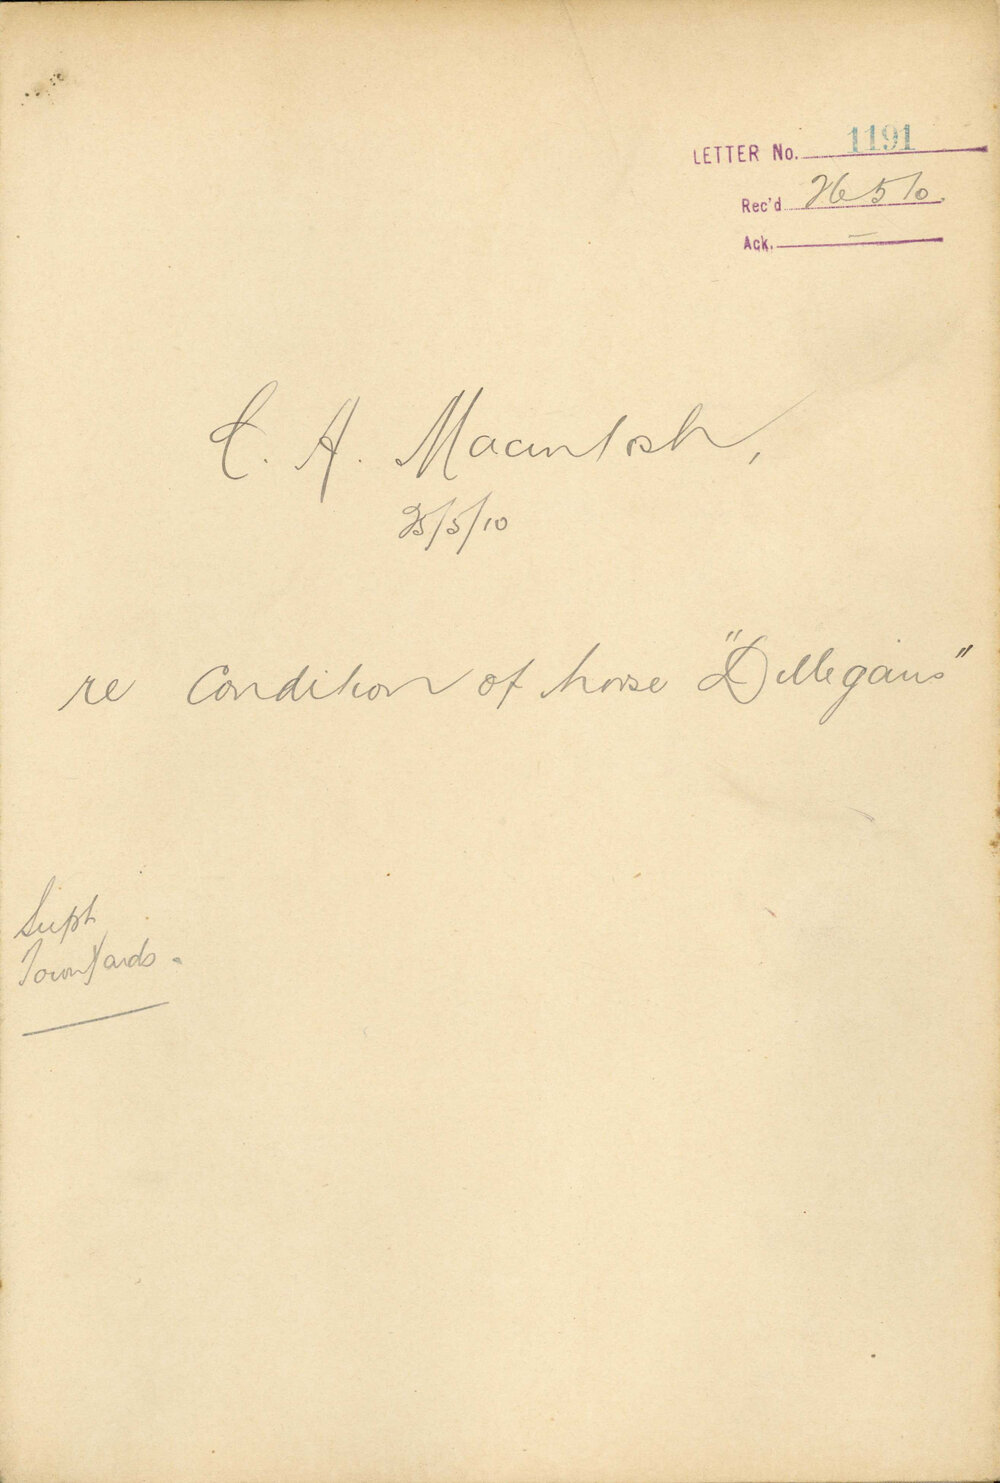 LETTER No. 1191
Rec'd 26 5/10.
Ack. —
C. A. Macintosh,
25/5/10
re Condition of horse "Dillegans"
Supt
Town Yards.